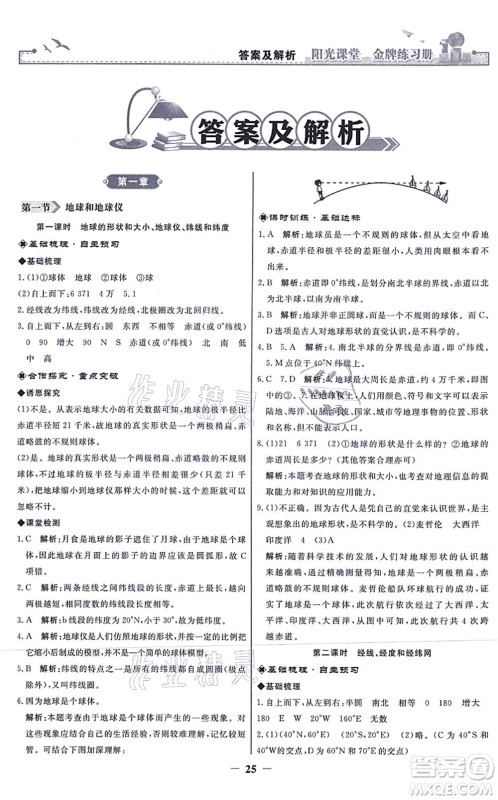 答案及解析 阳光课堂 金牌练习册
答案及解析
第一章
第一节 地球和地球仪
第一课时 地球的形状和大小、地球仪、纬线和纬度
基础梳理·自主预习
◆基础梳理
1.(1)①球体 地球 ②球体 球体
(2)自上而下:6 371 4万 5.1
2.经线改为纬线,北极圈改为北回归线。
3.自上而下,从左到右:圆 东西 不相等 赤道(或0°纬线)
0 90 增大 90 N S 赤道(或0°纬线) 北 南 低
中 高
合作探究·重点突破
◆诱思探究
(1)不是。从描述地球大小的有关数据可知,地球的极半径
比赤道半径少21千米,则地球的真实形状是两极稍扁、赤
道略鼓的不规则球体。
(2)是。地球的真实形状是一个两极稍扁、赤道略鼓的不规
则球体,因地球的极半径与赤道半径差别较少(少21千
米),把地球缩小制成地球仪后,这种微小的差距可以忽略
不计,因此地球仪做成正球体是正确的。
◆课堂检测
1.C 解析:月食是地球的影子遮住了月球,由于地球是球
体,因此地球在月面上的影子是圆弧形,故可以证明地球
是球体。
2.C 解析:两条经线之间的间隔,赤道处最大,自赤道向
两极递减。相同度数的纬线长度相等,20°N和20°S的
长度相等。
3.A 解析:制作地球仪的正确步骤是④①③②,制作的地
球仪是一个简单的地球模型。
4.A 解析:纬线的特点有:纬线是圆圈,每条纬线的长度不
一定相等,纬线指示东西方向。
5.(1)如下图所示。
解析:本题考查由于地球是个球体而产生的一些现象。对
这些现象应结合自己的生活经验,认真思考,才能理解较
深。可结合下图加深理解:
课时训练·基础达标
1.A 解析:地球虽是一个不规则的球体,但由于地球的体
积较大,赤道半径和极半径的差距很小,所以肉眼是看不
出来的。
2.B 解析:纬度的变化规律:以赤道(0°纬线)为界,赤道以
北为北半球,向北度数增大;赤道以南为南半球,向南度数
增大。
3.B 解析:地球并非正球体,而是不规则的球体。而C、
D选项是古人对地球形状的直觉认识。
4.A 5.A 解析:第4题,A点位于赤道(或0°纬线)。第
5题,M点位于40°N纬线上。
6.D 解析:地球的最大周长约4万千米,即赤道的周长;赤
道半径和极半径相差很小;地球仪上可以用颜色来表示大
陆、海洋、国家、城市或地形等地理事物的位置、形状及名
称等。
7.B 解析:纬线形状为圆圈。
8.(1)21 6 371 (2)①地球的形状是什么样的? ②地球的
赤道周长是多少?(其他答案合理亦可)
解析:本题考查地球的大小,也考查对地理信息的整理与
提取能力和对知识的灵活应用能力。
9.(1)不正确。因为古代人是凭直觉认识世界的,他们带有
主观想象的色彩。 (2)麦哲伦 大西洋 太平洋
印度洋 4 (3)①③④
解析:随着科学技术的发展,人们对地球形状的认识越来
越准确。地球的真实形状是两极稍扁、赤道略鼓的不规则
的球体。海边看船、登高望远、麦哲伦环球航行等现象都
是证明地球是球体的证据,而流星坠落不能证明地球是一
个球体。麦哲伦船队环球航行,自西向东依次经过了大西
洋、太平洋、印度洋、大西洋,此次航行共计4次跨越
赤道。
第二课时 经线、经度和经纬网
基础梳理·自主预习
◆基础梳理
1.自上而下:半圆 南北 相等 本初子午线 0 180 增大
180 E W
2.(1)(自西向东)西、东、西
(2)①赤道(或0°纬线)和0°经线(或本初子午线)的交点
②40°W和40°N的交点
25